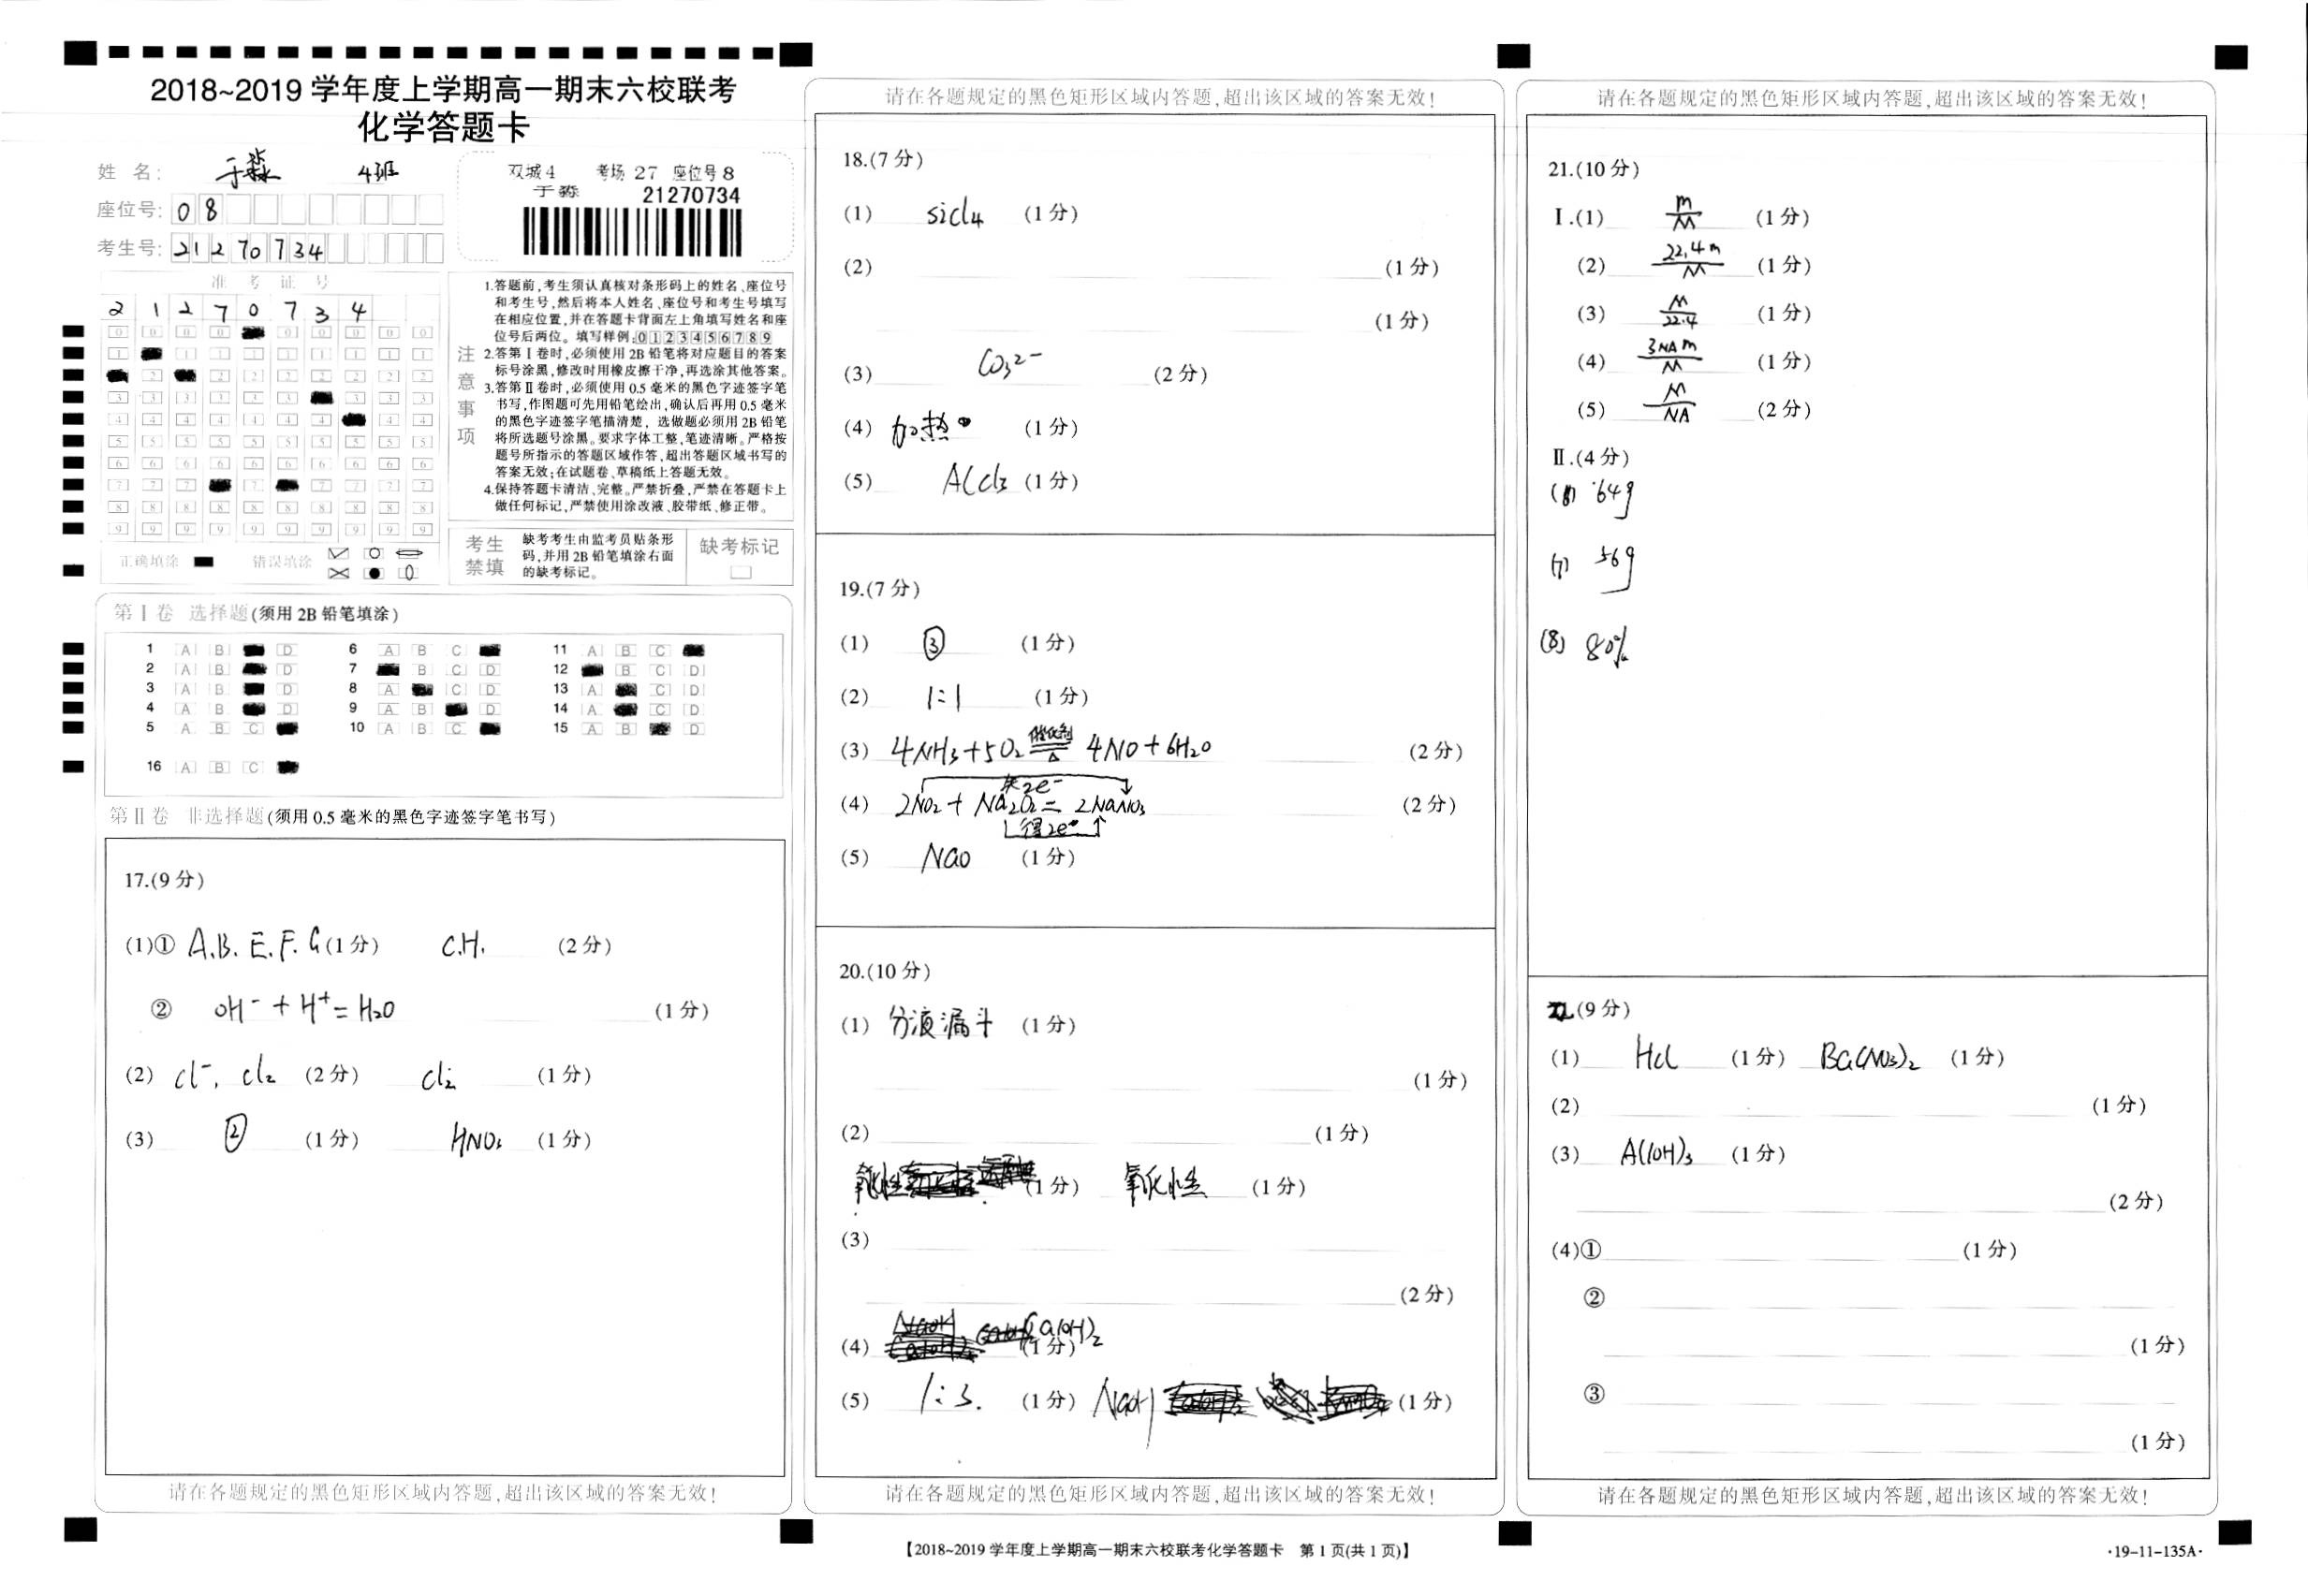 2018~2019 学年度上学期高一期末六校联考
化学答题卡
姓 名: 于淼 4班
座位号: 08
考生号: 21270734
双城4 考场 27 座位号 8
于淼 21270734
准 考 证 号
2 1 2 7 0 7 3 4
注意事项
1.答题前,考生须认真核对条形码上的姓名、座位号
和考生号,然后将本人姓名、座位号和考生号填写
在相应位置,并在答题卡背面左上角填写姓名和座
位号后两位。填写样例:0123456789
2.答第Ⅰ卷时,必须使用2B铅笔将对应题目的答案
标号涂黑,修改时用橡皮擦干净,再选涂其他答案。
3.答第Ⅱ卷时,必须使用0.5毫米的黑色字迹签字笔
书写,作图题可先用铅笔绘出,确认后再用0.5毫米
的黑色字迹签字笔描清楚, 选做题必须用2B铅笔
将所选题号涂黑。要求字体工整,笔迹清晰。严格按
题号所指示的答题区域作答,超出答题区域书写的
答案无效;在试题卷、草稿纸上答题无效。
4.保持答题卡清洁、完整。严禁折叠,严禁在答题卡上
做任何标记,严禁使用涂改液、胶带纸、修正带。
正确填涂 错误填涂
考生禁填
缺考考生由监考员贴条形
码,并用2B铅笔填涂右面
的缺考标记。
缺考标记
第Ⅰ卷 选择题(须用2B铅笔填涂)
1 A B D 6 A B C 11 A B C
2 A B D 7 B C D 12 B C D
3 A B D 8 A C D 13 A C D
4 A B D 9 A B D 14 A C D
5 A B C 10 A B C 15 A B D
16 A B C
第Ⅱ卷 非选择题(须用0.5毫米的黑色字迹签字笔书写)
17.(9分)
(1)① A.B.E.F.G (1分) C.H. (2分)
② OH⁻ + H⁺ = H₂O (1分)
(2) cl⁻, cl₂ (2分) cl₂ (1分)
(3) ② (1分) HNO₃ (1分)
请在各题规定的黑色矩形区域内答题,超出该区域的答案无效!
请在各题规定的黑色矩形区域内答题,超出该区域的答案无效!
18.(7分)
(1) sicl₄ (1分)
(2) (1分)
(1分)
(3) CO₃²⁻ (2分)
(4) 加热 (1分)
(5) Alcl₃ (1分)
19.(7分)
(1) ③ (1分)
(2) 1:1 (1分)
(3) 4NH₃+5O₂ 催化剂 ═ △ 4NO+6H₂O (2分)
失2e⁻
(4) 2NO₂ + Na₂O₂ = 2NaNO₃ (2分)
得2e⁻
(5) NaO (1分)
20.(10分)
(1) 分液漏斗 (1分)
(1分)
(2) (1分)
氧化性 (1分) 氧化性 (1分)
(3)
(2分)
(4) Ca(OH)₂ (1分)
(5) 1:3. (1分) NaOH (1分)
请在各题规定的黑色矩形区域内答题,超出该区域的答案无效!
请在各题规定的黑色矩形区域内答题,超出该区域的答案无效!
21.(10分)
Ⅰ.(1) m/M (1分)
(2) 22.4m/M (1分)
(3) M/22.4 (1分)
(4) 3NAm/M (1分)
(5) M/NA (2分)
Ⅱ.(4分)
(6) 64g
(7) 56g
(8) 80%
22.(9分)
(1) Hcl (1分) Ba(NO₃)₂ (1分)
(2) (1分)
(3) Al(OH)₃ (1分)
(2分)
(4)① (1分)
②
(1分)
③
(1分)
请在各题规定的黑色矩形区域内答题,超出该区域的答案无效!
【2018~2019 学年度上学期高一期末六校联考化学答题卡 第1页(共1页)】
·19-11-135A·